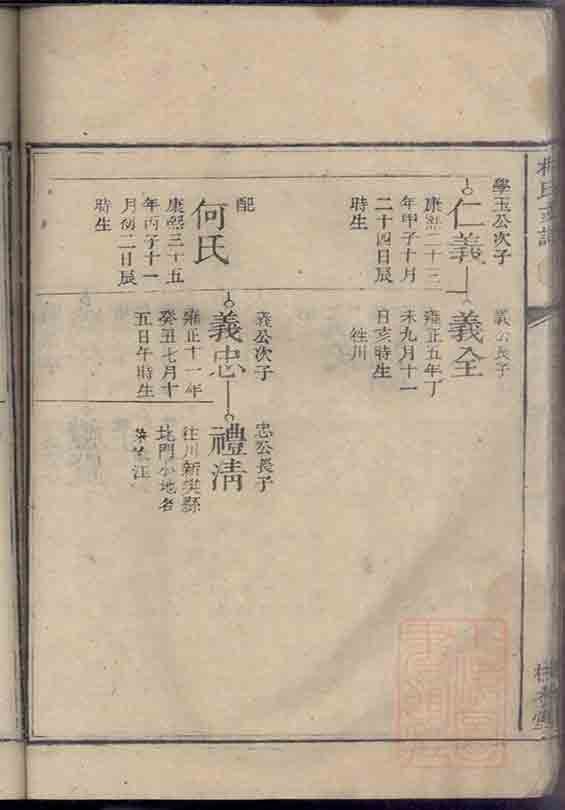 學玉公次子
仁義
康熙二十三
年甲子十月
二十四日辰
時生
配
何氏
康熙三十五
年丙子十一
月初二日辰
時生
義公長子
義全
雍正五年丁
未九月十一
日亥時生
往川
義公次子
義忠
雍正十一年
癸丑七月十
五日午時生
忠公長子
禮清
往川新 縣
北門小地名
江